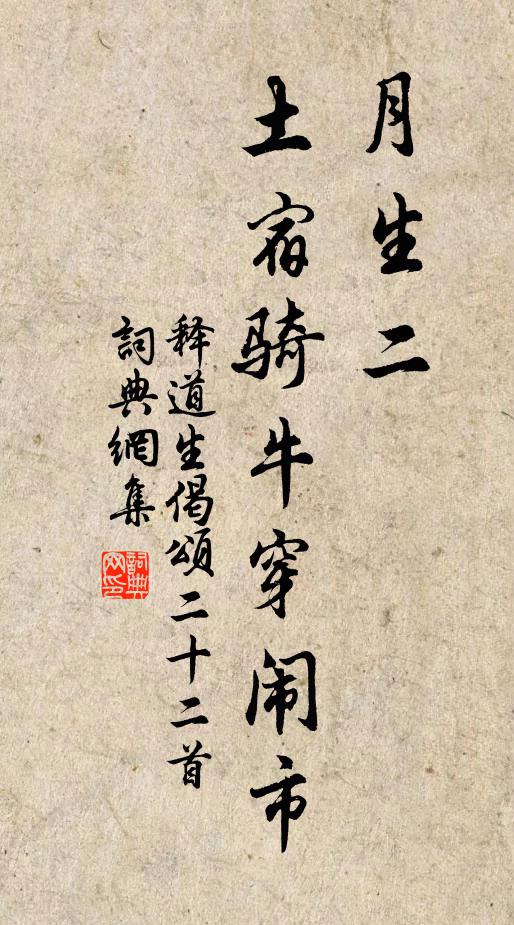 月生二
土宿骑牛穿闹市
释道生偈頌二十二首
詞典網集
詞典網印